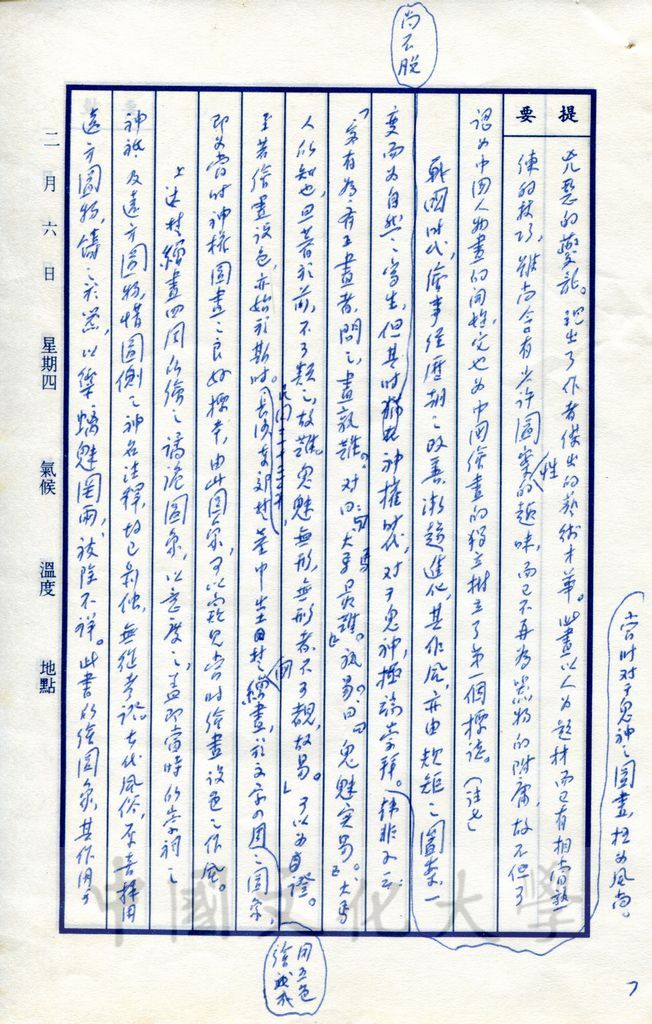 尚不脫
提要
兇惡的夔龍。現出了作者傑出的藝術才華。此畫以人為題材而已有相當熟
練的技巧，雖尚含有少許圖案性的趣味，而已不再為器物的附庸，故不但可
認為中國人物畫的開始，也為中國繪畫的獨立樹立了第一個標誌。（註七
戰國時代，繪事經歷朝之改善，漸趨進化，其作風，亦由規矩之圖案一
變而為自然之寫生，但其時猶神權時代，對于鬼神，極端崇拜。韓非子云：
「客有為齊王畫者，問之，畫孰難。对曰：『犬馬最難。』孰易。曰『鬼魅最易。』犬馬
人所知也，旦暮於前，不可類之，故難。鬼魅無形，無形者，不可覩，故易。」可以為證。
至若繪畫設色，亦始於斯時。民國三十三年，長沙東郊楚墓中出土繒畫，於文字四周之圖案
用五色繪成
即為當時神權圖畫之良好標本，由此圖案，可以窺見當時繪畫設色之作風。
上述楚繒畫四周所繪之譎詭圖象，以意度之，蓋即當時的崇祠之
神祇及遠方圖物，惜圖側之神名注釋，均已剝蝕，無從考證。古代風俗，本喜採用
遠方圖物，鑄之於器，以禦螭魅罔兩，祓除不祥。此書的繪圖象，其作用
當时对于鬼神之圖畫，极为風尚。
二月六日 星期四 氣候 溫度 地點
7
中國文化大學